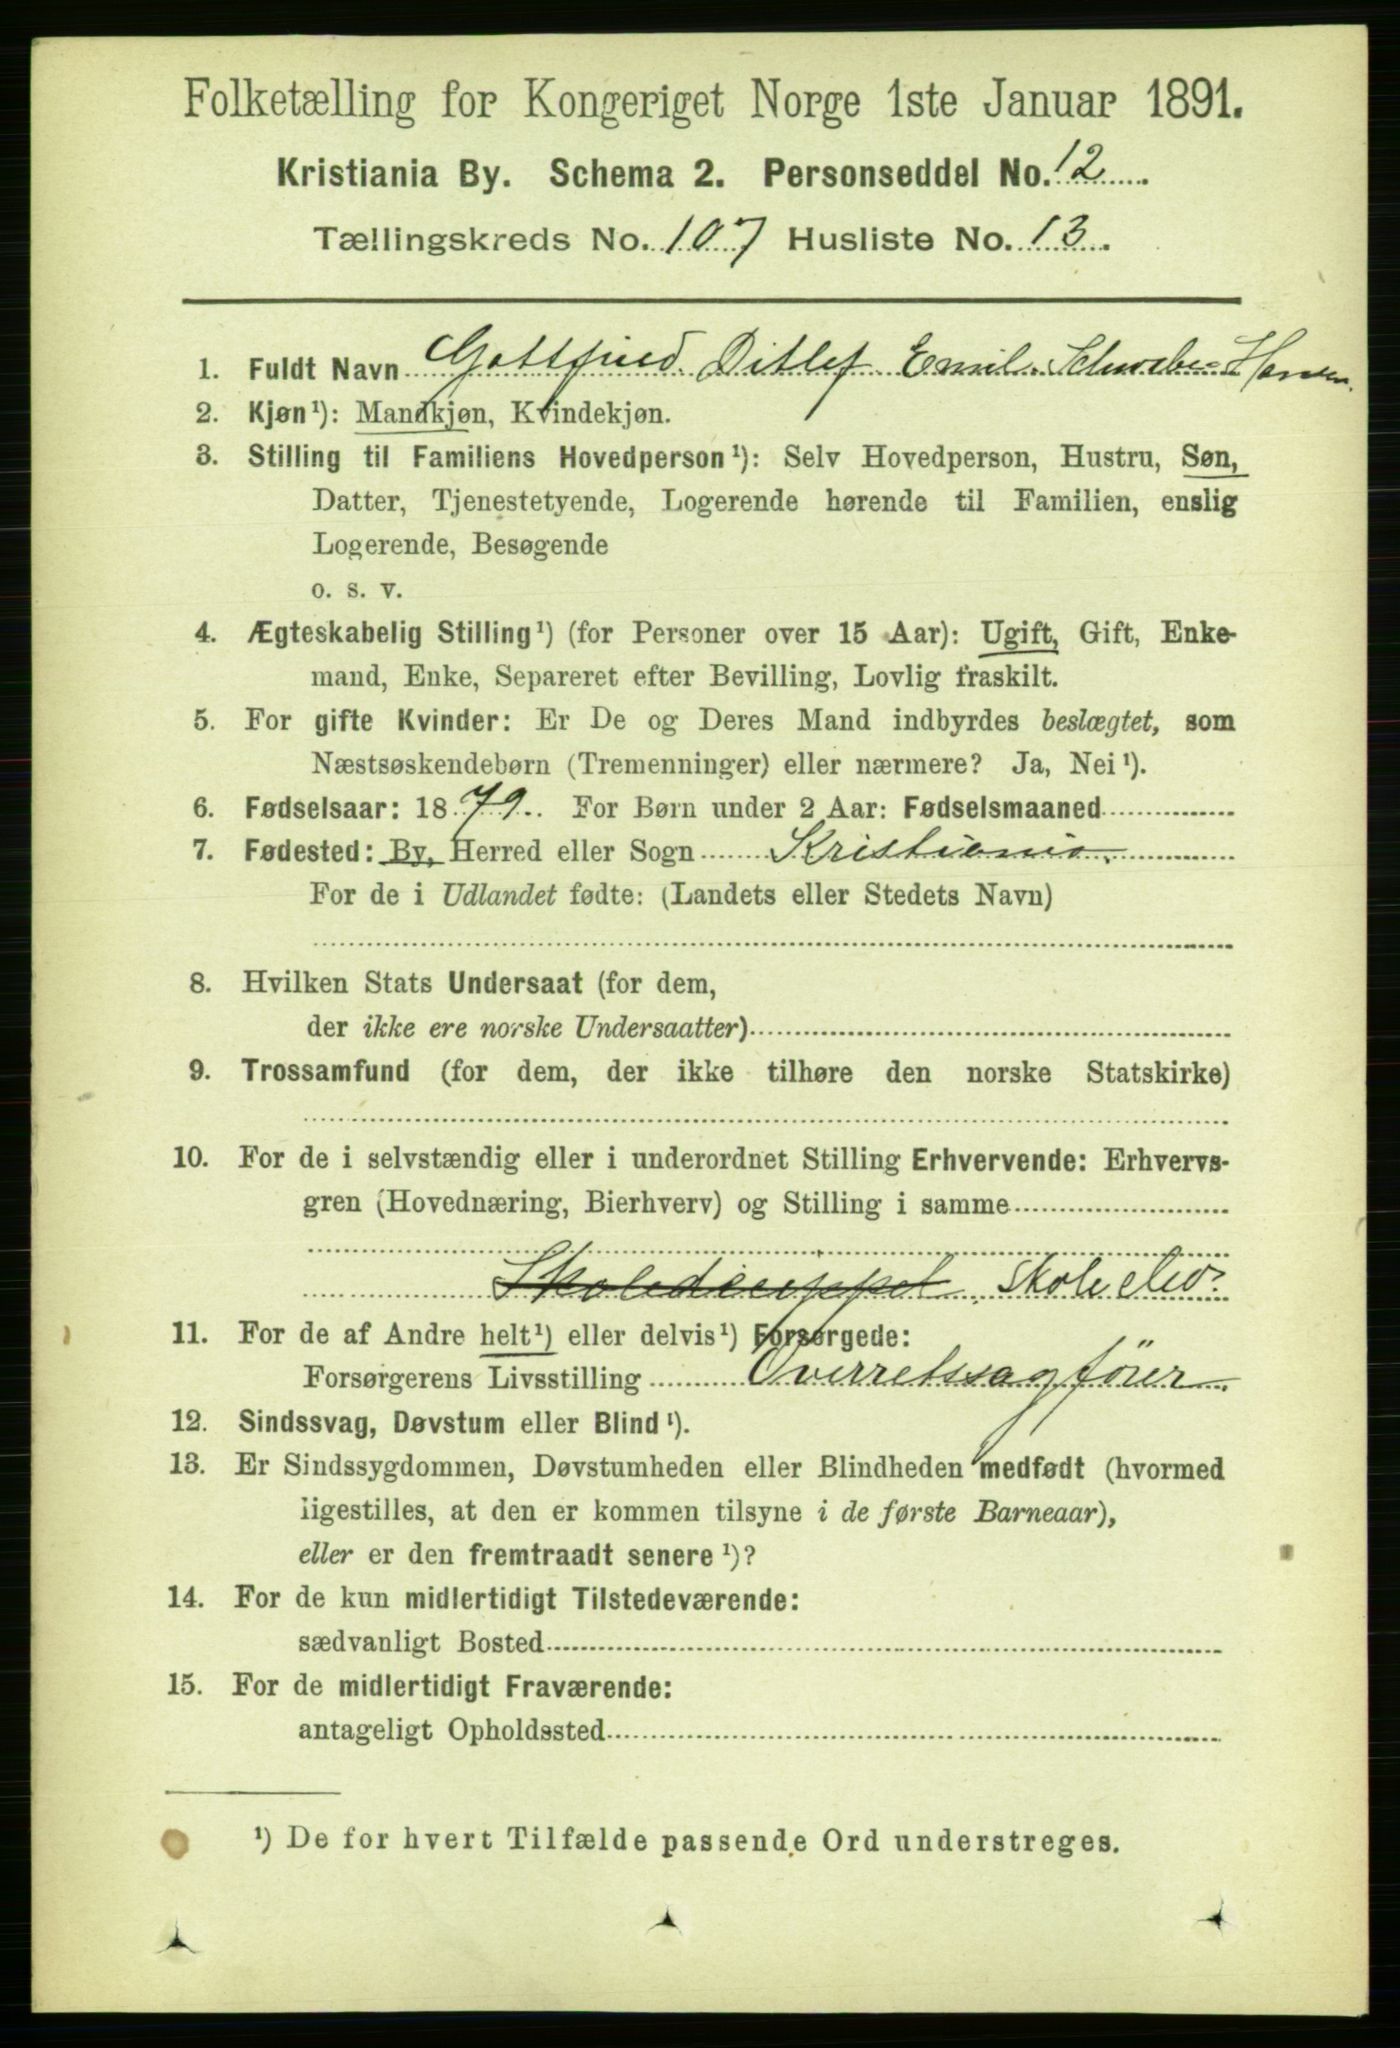 Folketælling for Kongeriget Norge 1ste Januar 1891.
Kristiania By. Schema 2. Personseddel No. 12
Tællingskreds No. 107 Husliste No. 13.
1. Fuldt Navn Gottfried Ditlef Emil Hansen.
2. Kjøn¹): Mandkjøn, Kvindekjøn.
3. Stilling til Familiens Hovedperson¹): Selv Hovedperson, Hustru, Søn,
Datter, Tjenestetyende, Logerende hørende til Familien, enslig
Logerende, Besøgende
o. s. v.
4. Ægteskabelig Stilling¹) (for Personer over 15 Aar): Ugift, Gift, Enke-
mand, Enke, Separeret efter Bevilling, Lovlig fraskilt.
5. For gifte Kvinder: Er De og Deres Mand indbyrdes beslægtet, som
Næstsøskendebørn (Tremenninger) eller nærmere? Ja, Nei¹).
6. Fødselsaar: 1879. For Børn under 2 Aar: Fødselsmaaned
7. Fødested: By, Herred eller Sogn Kristiania.
For de i Udlandet fødte: (Landets eller Stedets Navn)
8. Hvilken Stats Undersaat (for dem,
der ikke ere norske Undersaatter)
9. Trossamfund (for dem, der ikke tilhøre den norske Statskirke)
10. For de i selvstændig eller i underordnet Stilling Erhvervende: Erhvervs-
gren (Hovednæring, Bierhverv) og Stilling i samme
Skoleelev
11. For de af Andre helt¹) eller delvis¹) Forsørgede:
Forsørgerens Livsstilling Overretssagfører.
12. Sindssvag, Døvstum eller Blind¹).
13. Er Sindssygdommen, Døvstumheden eller Blindheden medfødt (hvormed
ligestilles, at den er kommen tilsyne i de første Barneaar),
eller er den fremtraadt senere¹)?
14. For de kun midlertidigt Tilstedeværende:
sædvanligt Bosted
15. For de midlertidigt Fraværende:
antageligt Opholdssted
¹) De for hvert Tilfælde passende Ord understreges.